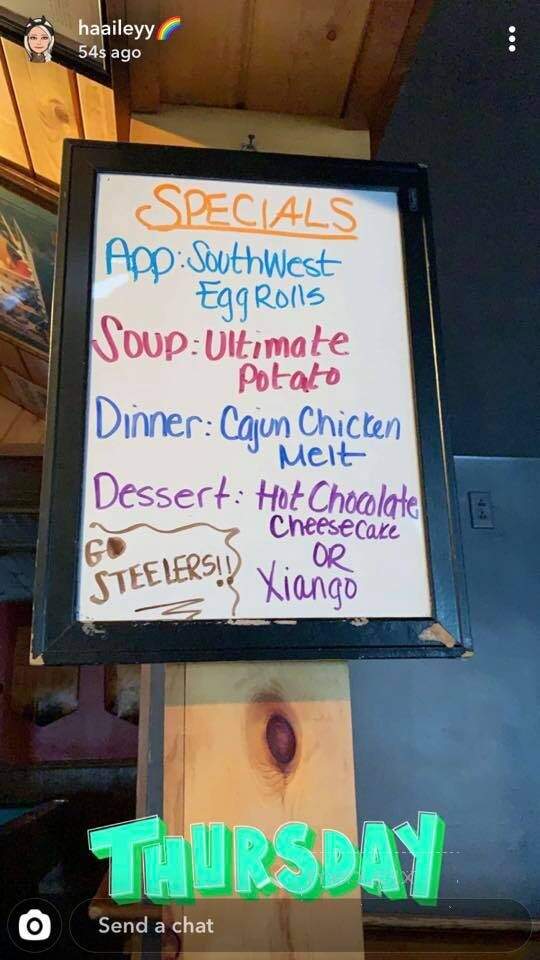 haaileyy🌈
54s ago
SPECIALS
App: SouthWest
Egg Rolls
Soup: Ultimate
Potato
Dinner: Cajun Chicken
Melt
Dessert: Hot Chocolate
Cheesecake
OR
Xiango
GO
STEELERS!!
THURSDAY
Send a chat